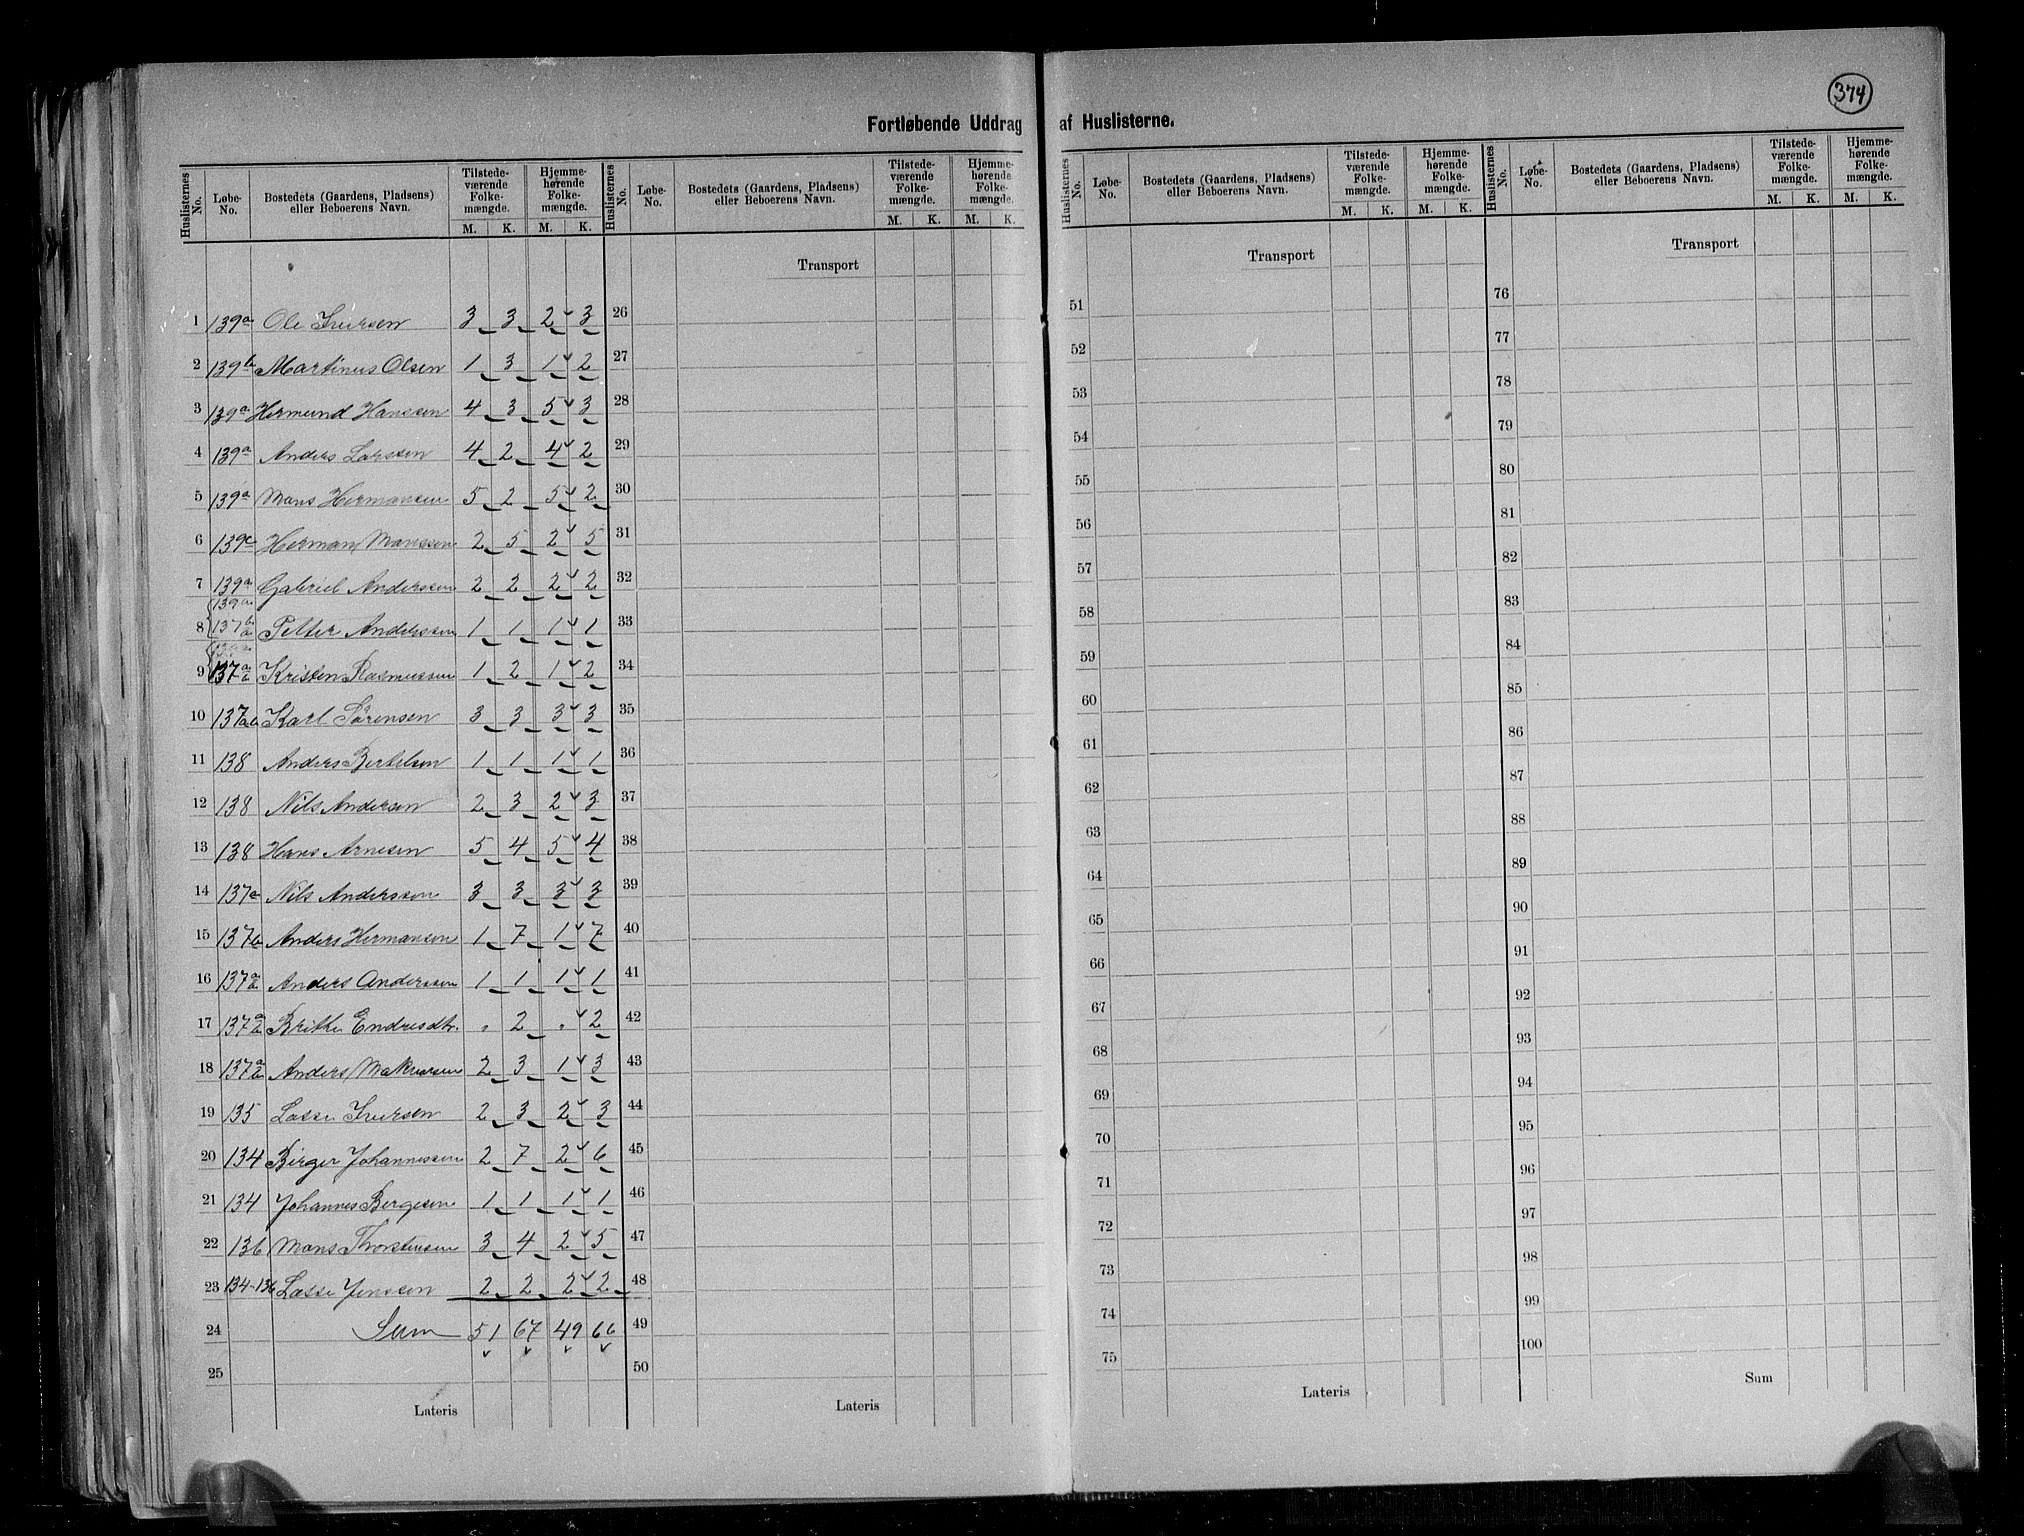 374
Fortløbende Uddrag af Huslisterne.
Huslisternes No. | Løbe-No. | Bostedets (Gaardens, Pladsens) eller Beboerens Navn. | Tilstedeværende Folkemængde. M. K. | Hjemmehørende Folkemængde. M. K.
1 139a Ole Iversen 3 3 2 3
2 139b Martinus Olsen 1 3 1 2
3 139a Hermund Hanssen 4 3 5 3
4 139a Anders Larssen 4 2 4 2
5 139a Mons Hermansen 5 2 5 2
6 139c Herman Monssen 2 5 2 5
7 139a Gabriel Anderssen 2 2 2 2
8 Petter Anderssen 1 1 1 1
9 137a Kristen Rasmussen 1 2 1 2
10 Karl Sörensen 3 3 3 3
11 138 Anders Bertelsen 1 1 1 1
12 138 Nils Andersen 2 3 2 3
13 138 Hans Arnesen 5 4 5 4
14 137a Nils Anderssen 3 3 3 3
15 Anders Hermansen 1 7 1 7
16 Anders Anderssen 1 1 1 1
17 Brithe Endresdtr. " 2 " 2
18 Anders 2 3 1 3
19 135 Lasse Iversen 2 3 2 3
20 134 Birger Johannessen 2 7 2 6
21 134 Johannes Bergesen 1 1 1 1
22 136 Mons Thorstensen 3 4 2 5
23 134-136 Lasse Jenssen 2 2 2 2
24 Sum 51 67 49 66
25
Lateris
Huslisternes No. | Løbe-No. | Bostedets (Gaardens, Pladsens) eller Beboerens Navn. | Tilstedeværende Folkemængde. M. K. | Hjemmehørende Folkemængde. M. K.
Transport
26
27
28
29
30
31
32
33
34
35
36
37
38
39
40
41
42
43
44
45
46
47
48
49
50
Lateris
Huslisternes No. | Løbe-No. | Bostedets (Gaardens, Pladsens) eller Beboerens Navn. | Tilstedeværende Folkemængde. M. K. | Hjemmehørende Folkemængde. M. K.
Transport
51
52
53
54
55
56
57
58
59
60
61
62
63
64
65
66
67
68
69
70
71
72
73
74
75
Lateris
Huslisternes No. | Løbe-No. | Bostedets (Gaardens, Pladsens) eller Beboerens Navn. | Tilstedeværende Folkemængde. M. K. | Hjemmehørende Folkemængde. M. K.
Transport
76
77
78
79
80
81
82
83
84
85
86
87
88
89
90
91
92
93
94
95
96
97
98
99
100
Sum